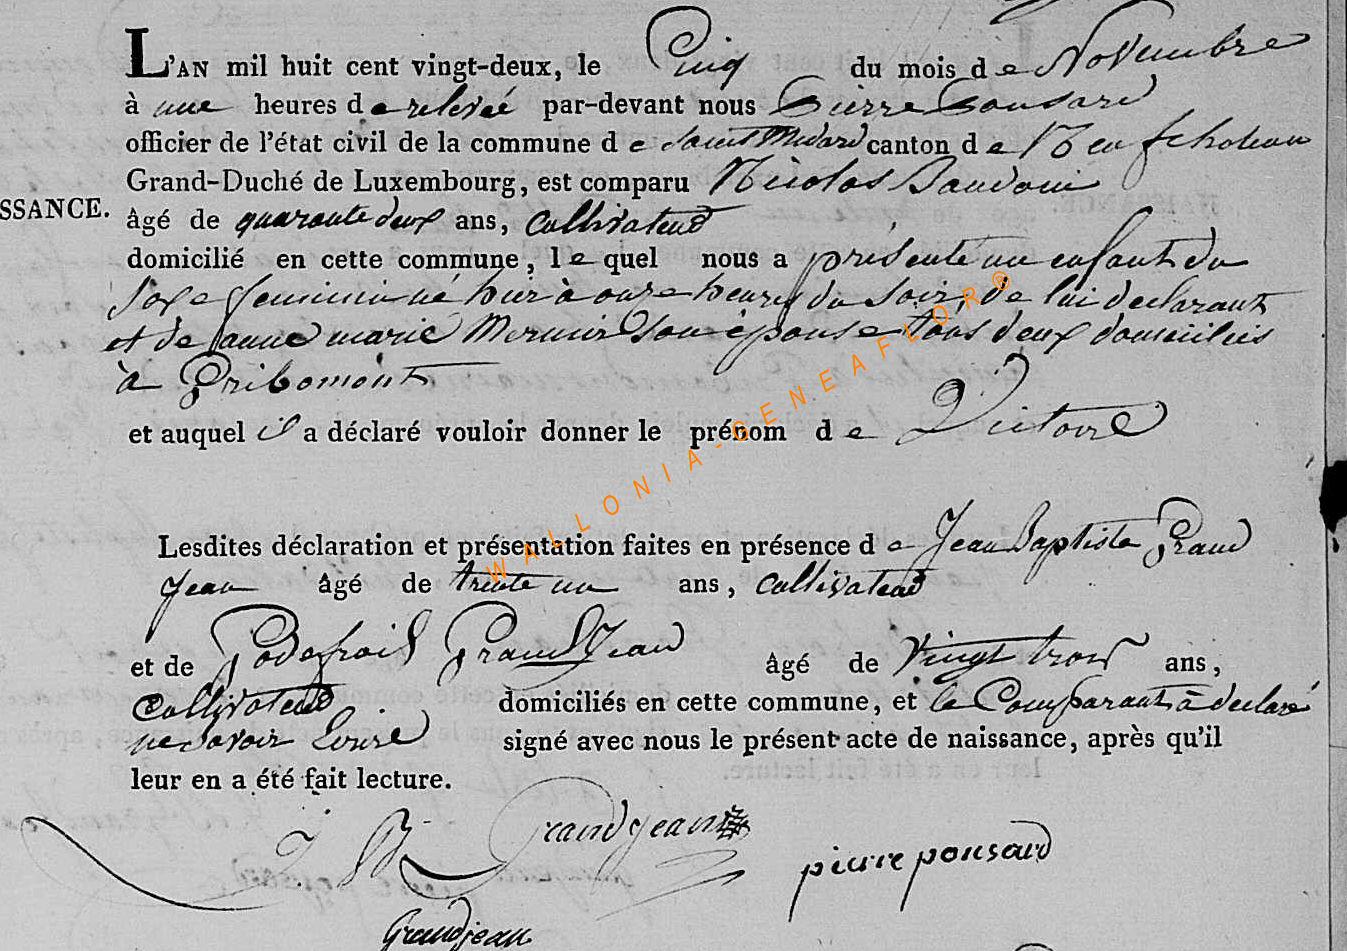 L'AN mil huit cent vingt-deux, le Cinq du mois de Novembre
à une heures de relevée par-devant nous Pierre Ponsard
officier de l'état civil de la commune de Saint Medard canton de Neufchateau
SSANCE.
Grand-Duché de Luxembourg, est comparu Nicolas Baudoin
âgé de quarante deux ans, Cultivateur
domicilié en cette commune, le quel nous a présenté un enfant du
sexe feminin né hier à onze heures du soir, de lui déclarant
et de anne marie son épouse tous deux domiciliés
à Gribomont
et auquel il a déclaré vouloir donner le prénom de Victoire
Lesdites déclaration et présentation faites en présence de Jean Baptiste Grand
Jean âgé de trente un ans, Cultivateur
et de Godefroid Grand Jean âgé de Vingt trois ans,
Cultivateur domiciliés en cette commune, et le Comparant à declaré
ne savoir Ecrire signé avec nous le présent acte de naissance, après qu'il
leur en a été fait lecture.
J B Grandjean
pierre ponsard
Grandjean
WALLONIA-GENEAFLOR®